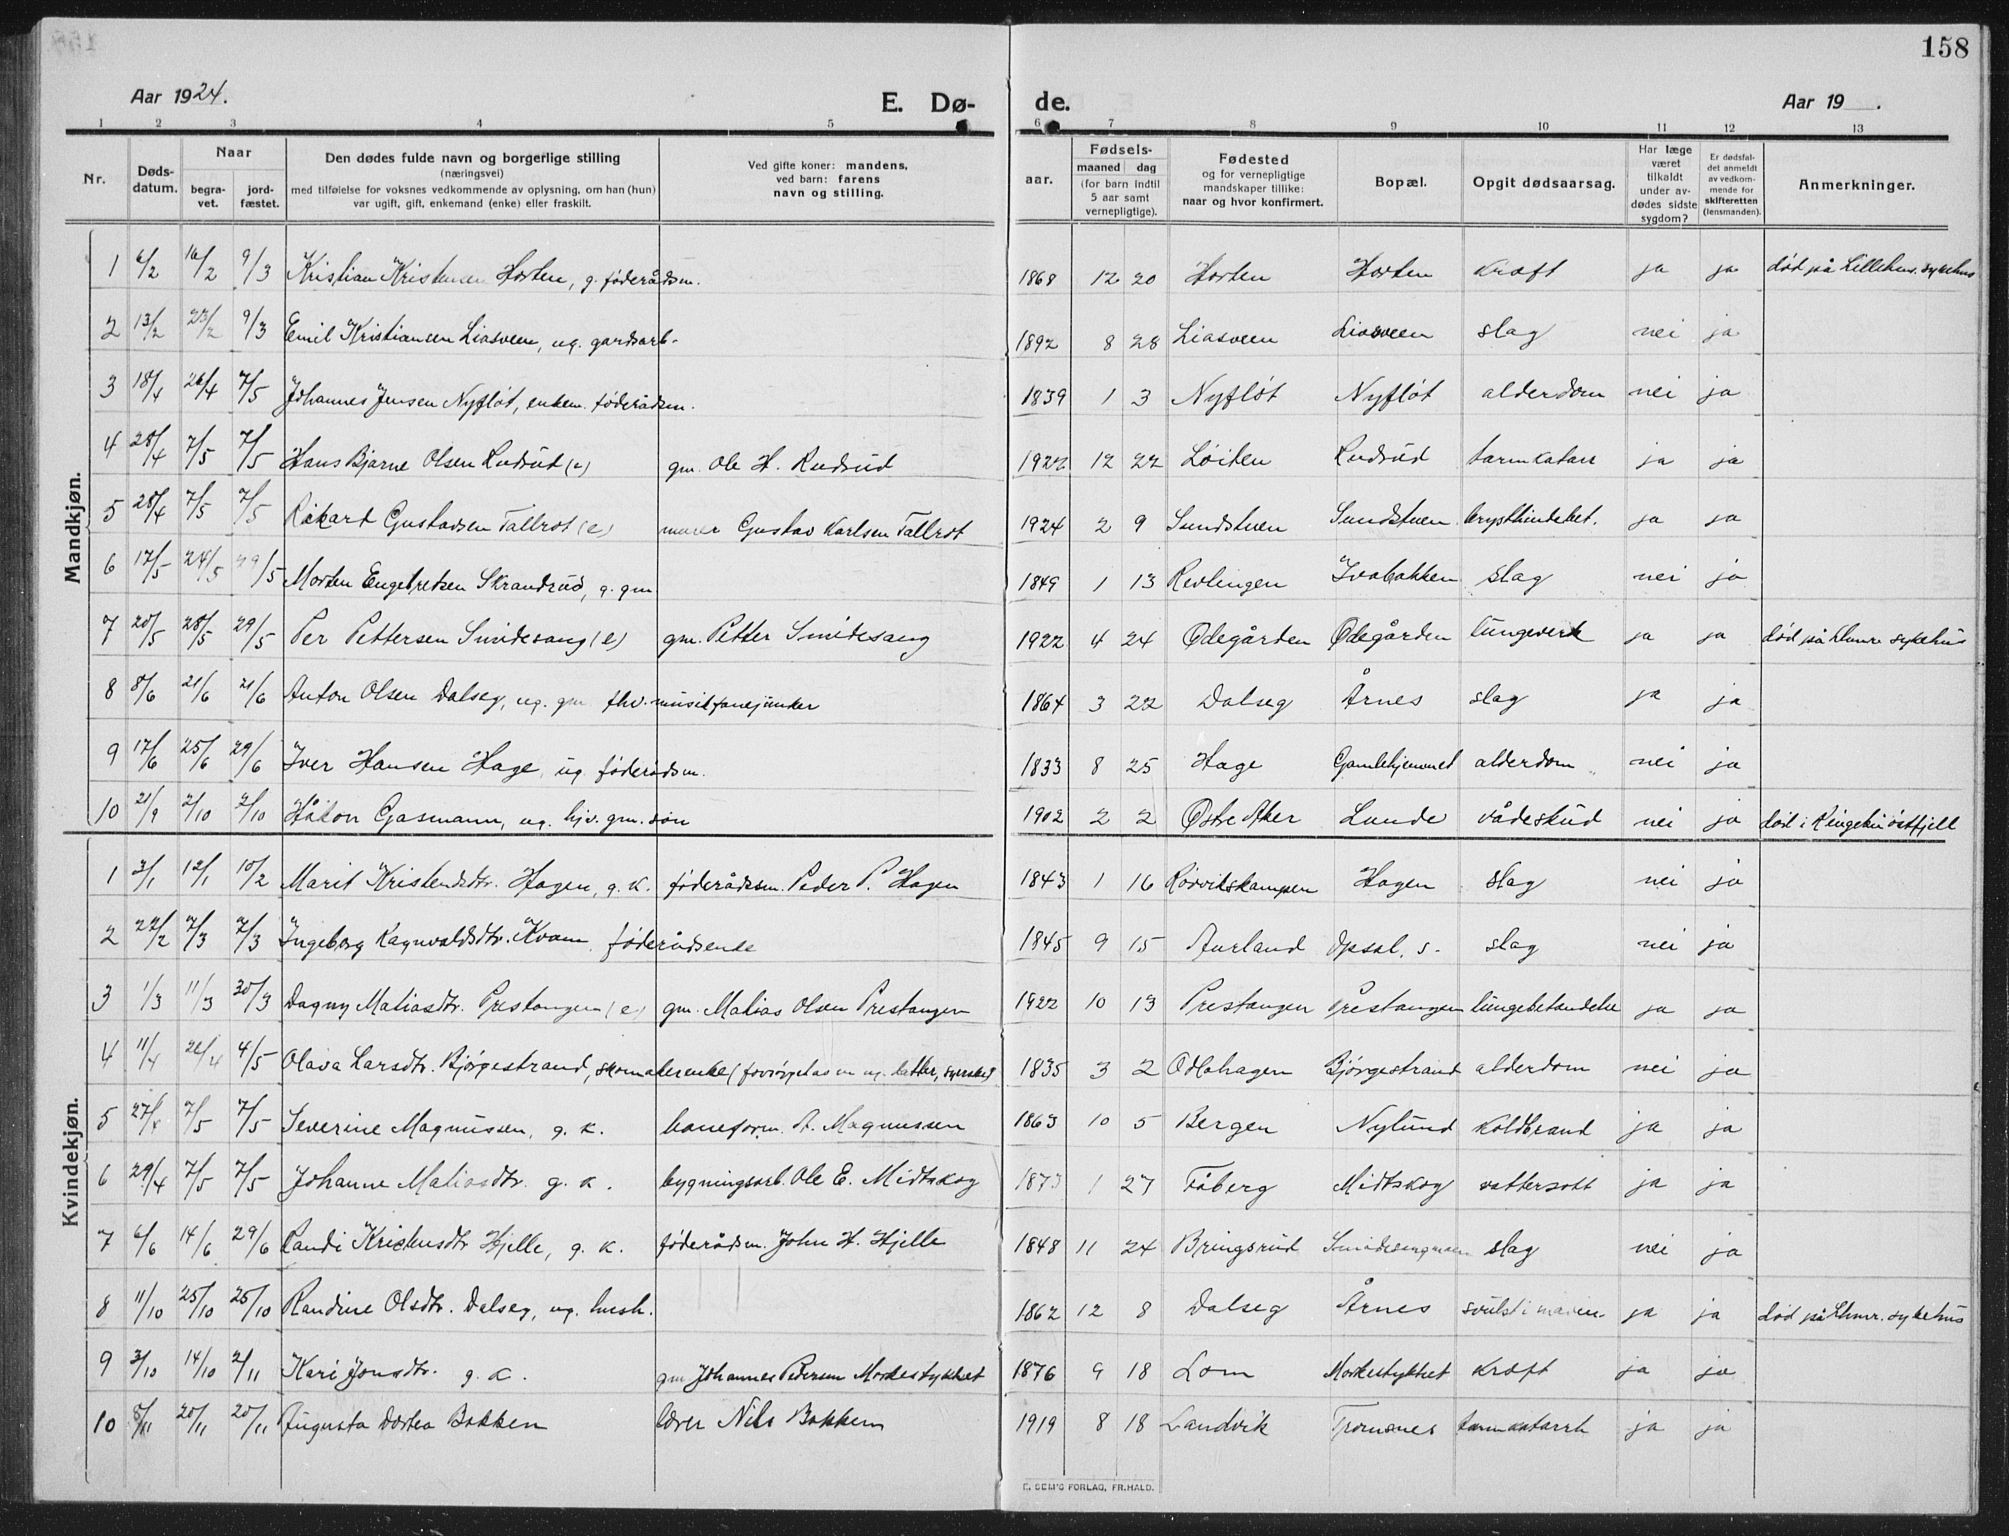 158
Aar 1924.
E. Dø-
de.
Aar 19 .
1 2 3 4 5 6 7 8 9 10 11 12 13
Nr.
Døds-
datum.
Naar
begra-
vet.
jord-
fæstet.
Den dødes fulde navn og borgerlige stilling
(næringsvei)
med tilføielse for voksnes vedkommende av oplysning, om han (hun)
var ugift, gift, enkemand (enke) eller fraskilt.
Ved gifte koner: mandens,
ved barn: farens
navn og stilling.
Fødsels-
aar.
maaned dag
(for barn indtil
5 aar samt
vernepligtige).
Fødested
og for vernepligtige
mandskaper tillike:
naar og hvor konfirmert.
Bopæl.
Opgit dødsaarsag.
Har læge
været
tilkaldt
under av-
dødes sidste
sygdom?
Er dødsfal-
det anmeldt
av vedkom-
mende for
skifteretten
(lensmanden).
Anmerkninger.
Mandkjøn.
1 6/2 16/2 9/3 Kristian Kristensen Horten, g. føderådsm. 1868 12 20 Horten Horten kræft ja ja død på Lilleham. sykehus
2 13/2 23/2 9/3 Emil Kristiansen Liasveen, ug. gardsarb. 1892 8 28 Liasveen Liasveen slag nei ja
3 18/4 26/4 7/5 Johannes Jensen Nyfløt, enkem. føderådsm. 1839 1 3 Nyfløt Nyfløt alderdom nei ja
4 28/4 7/5 7/5 Hans Bjarne Olsen Rudsud (e) gm. Ole H. Rudsud 1922 12 22 Løiten Rudsud tarmkatarr ja ja
5 28/4 7/5 7/5 Rikard Gustavsen Tallrot (e) murer Gustav Karlsen Tallrot 1924 2 9 Sundstuen Sundstuen brysthindebet. ja ja
6 17/5 24/5 29/5 Morten Engebretsen Skrandrud, g. gm 1849 1 13 Revlingen Ivabakken slag nei ja
7 20/5 28/5 29/5 Per Pettersen Smidesang (e) gm. Petter Smidesang 1922 4 24 Ødegården Ødegården lungeverk ja ja død på Lhmr. sykehus
8 8/6 21/6 21/6 Anton Olsen Dalseg, ug. gm fhv. musikfanejunker 1864 3 22 Dalseg Årnes slag ja ja
9 17/6 25/6 29/6 Iver Hansen Hage, ug. føderådsm. 1833 8 25 Hage Gamlehjemmet alderdom nei ja
10 21/9 2/10 2/10 Håkon Gasmann, ug. hjv. gm. søn 1902 2 2 Østre Aker Lunde vådeskud nei ja død i Ringebu østfjell
Kvindekjøn.
1 3/1 12/1 10/2 Marit Kristensdtr. Hagen, g. k. føderådsm. Peder P. Hagen 1843 1 16 Rørvikskampen Hagen slag nei ja
2 22/2 7/3 7/3 Ingeborg Ragnvaldsdtr. Kvam, føderådsenke 1845 9 15 Aurland Opsal. s. slag nei ja
3 1/3 11/3 30/3 Dagny Matiasdtr. Prestangen (e) gm. Matias Olsen Prestangen 1922 10 13 Prestangen Prestangen lungebetændelse ja ja
4 11/4 26/4 4/5 Olava Larsdtr. Bjørgestrand, skomakerenke (forsørges av ug. datter, syerske) 1835 3 2 Odlohagen Bjørgestrand alderdom nei ja
5 27/4 7/5 7/5 Severine Magnussen, g. k. baneform. A. Magnussen 1863 10 5 Bergen Nylund Koldbrand ja ja
6 29/4 7/5 7/5 Johanne Matiasdtr. g. k. bygningsarb. Ole E. Midtskog 1873 1 27 Fåberg Midtskog vattersott ja ja
7 6/6 14/6 29/6 Randi Kristensdtr Hjelle, g. k. føderådsm. John H. Hjelle 1848 11 24 Bringsrud slag nei ja
8 11/10 25/10 25/10 Randine Olsdtr. Dalseg, ug. hush. 1862 12 8 Dalseg Årnes svulst i maven ja ja død på Lhmr. sykehus
9 3/10 14/10 2/11 Kari Jonsdtr. g. k. gm Johannes Pedersen Morkestykket 1876 9 18 Lom Morkestykket kræft ja ja
10 8/11 20/11 20/11 Augusta Dortea Bakken lærer Nils Bakken 1919 8 18 Landvik Tromsnes tarmkatarrh ja ja
E. SEM'S FORLAG, FR.HALD.